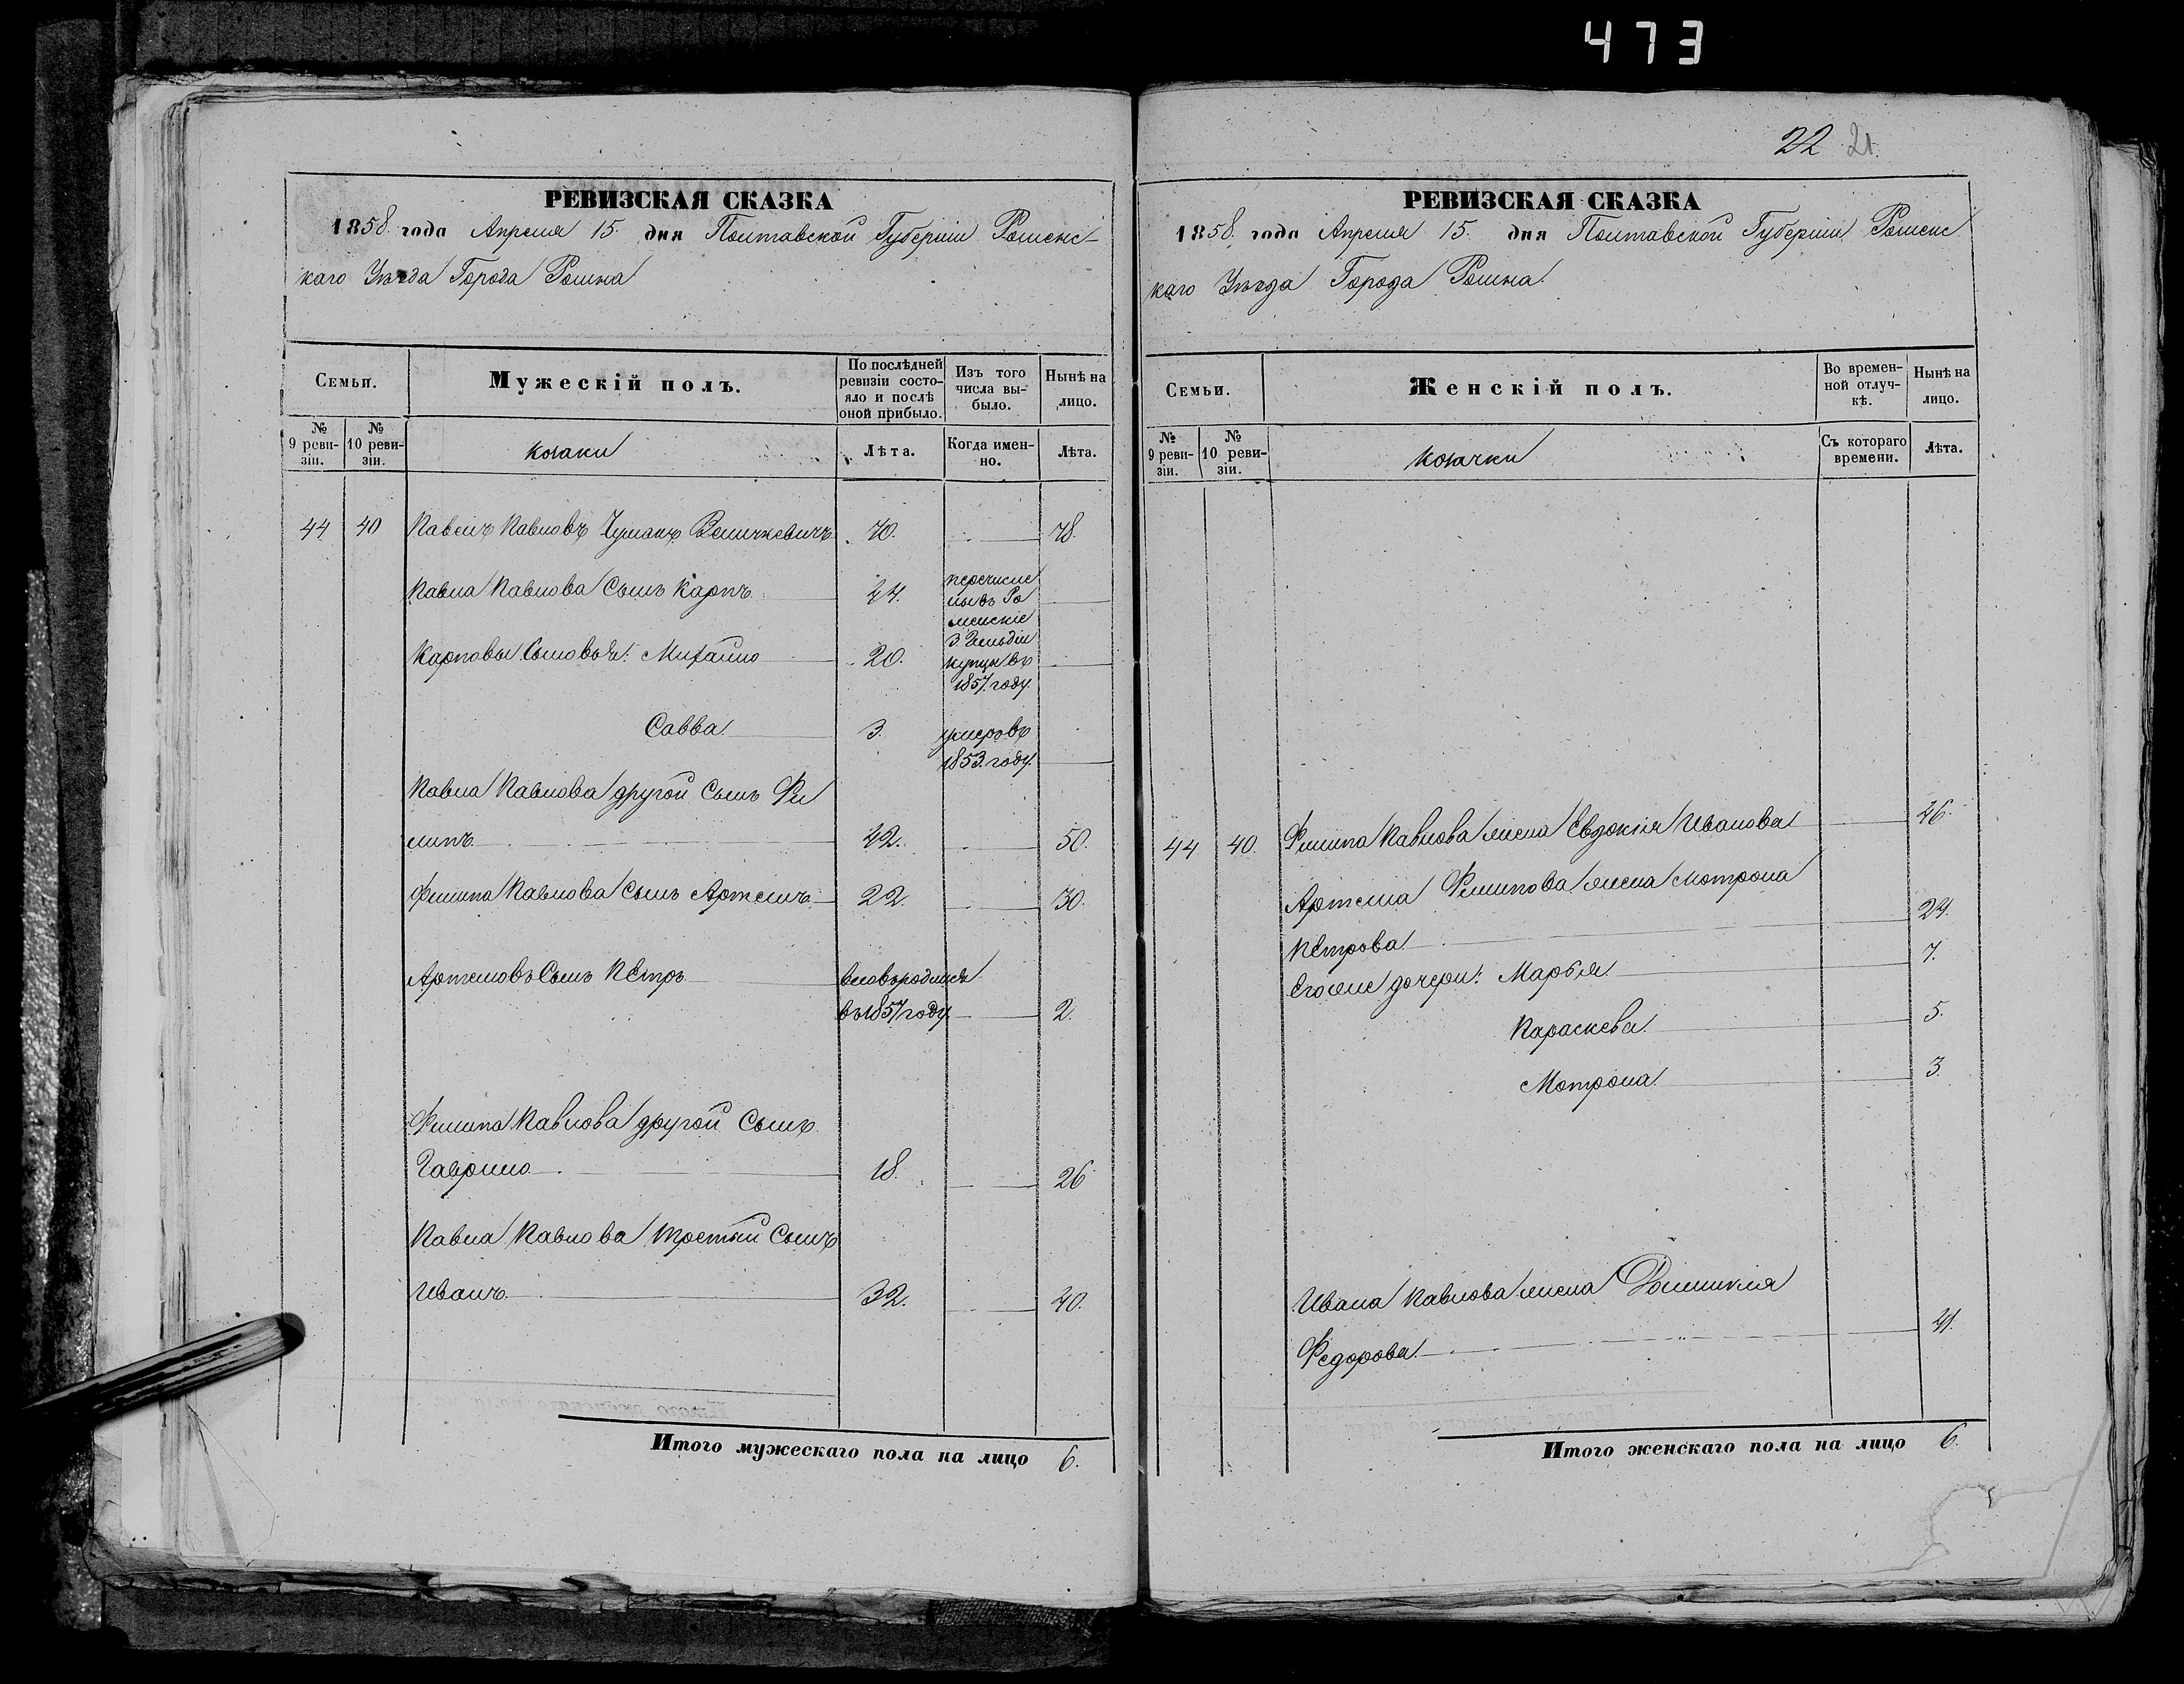 473
22 21.
РЕВИЗСКАЯ СКАЗКА
1858. года Апреля 15. дня Полтавской Губерніи Роменс-
каго Уѣзда Города Ромна
Семьи.
Мужескій полъ.
По послѣдней ревизіи состояло и послѣ оной прибыло.
Изъ того числа выбыло.
Нынѣ на лицо.
№ 9 ревизіи.
№ 10 ревизіи.
козаки
Лѣта.
Когда именно.
Лѣта.
44 40 Павелъ Павловъ Чумакъ Величкевичъ 70. 78.
Павла Павлова Сынъ Карпъ 44. перечисле
ны въ Ро
менскіе
Карповы Сыновья: Михайло 20. 3. Гильдіи
купцы въ
1857. году.
Савва 3. умеръ въ
1853. году.
Павла Павлова другой Сынъ Фи
липъ 42. 50.
Филипа Павлова Сынъ Артемъ 22. 30.
Артемовъ Сынъ Петръ вновьродился
въ 1857 году. 2.
Филипа Павлова другой Сынъ
Гаврило 18. 26
Павла Павлова третий Сынъ
Иванъ 32. 40.
Итого мужескаго пола на лицо 6.
РЕВИЗСКАЯ СКАЗКА
1858. года Апреля 15. дня Полтавской Губерніи Роменс
каго Уѣзда Города Ромна.
Семьи.
Женскій полъ.
Во временной отлучкѣ.
Нынѣ на лицо.
№ 9 ревизіи.
№ 10 ревизіи.
козачки
Съ котораго времени.
Лѣта.
44 40. Филипа Павлова жена Евдокія Иванова 46.
Артема Филипова жена Мотрона
Петрова 24.
Егоже дочери: Марья 7.
Параскева 5.
Мотрона 3.
Ивана Павлова жена Домникія
Федорова 41.
Итого женскаго пола на лицо 6.